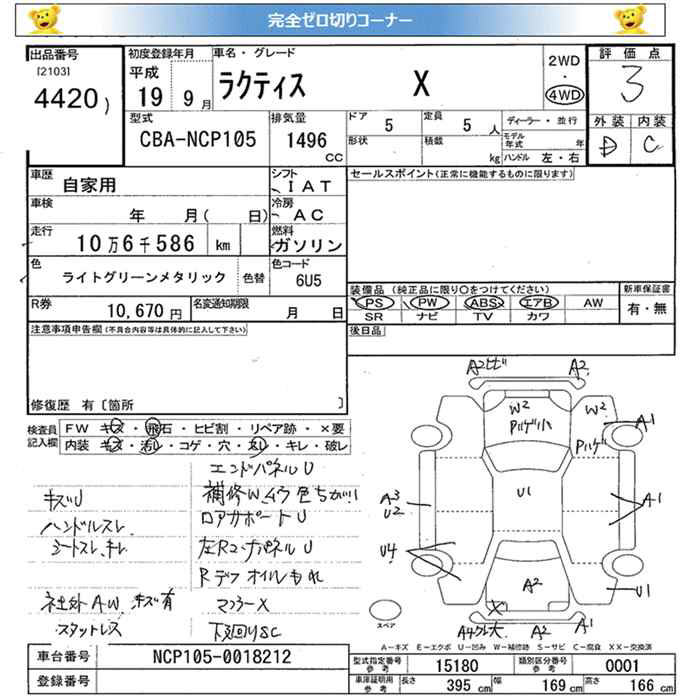 完全ゼロ切りコーナー
出品番号
[2103]
4420)
初度登録年月
平成
19 9月
車名・グレード
ラクティス X
2WD
・
4WD
評価点
3
外装 内装
D C
型式
CBA-NCP105
排気量
1496
CC
ドア
5
定員
5 人
形状
積載
kg
ディーラー・並行
モデル年式 年
ハンドル 左・右
車歴
自家用
シフト
IAT
セールスポイント(正常に機能するものに限ります)
車検
年 月( 日)
冷房
AC
走行
10万6千586 km
燃料
ガソリン
色
ライトグリーンメタリック
色替
色コード
6U5
装備品(純正品に限り○をつけてください)
新車保証書
PS PW ABS エアB AW
有・無
SR ナビ TV カワ
R券
10,670円
名変通知期限
月 日
後日品
注意事項申告欄(不具合内容等は具体的に記入して下さい)
修復歴 有〔箇所 〕
検査員
記入欄
FW キズ・飛石・ヒビ割・リペア跡・×要
内装・キズ・汚レ・コゲ・穴・スレ・キレ・破レ
エンドパネルU
キズU
補修W、ムラ色ちがい
ハンドルスレ
ロアカポートU
シートスレ、キレ
左RコーナパネルU
Rデフオイルもれ
社外AW、キズ有
マフラーX
スタットレス
下廻りSC
A2ヒビ
A2
W2
W2
Pハゲ小
Pハゲ
A1
U1
A3
U2
A1
U4
U1
A2
X
A4クレ大
A2
A1
スペア
A-キズ E-エクボ U-凹み W-補修跡 S-サビ C-腐食 XX-交換済
車台番号
NCP105-0018212
登録番号
型式指定番号
参考
15180
類別区分番号
参考
0001
車庫証明用
参考
長さ
395 cm
幅
169 cm
高さ
166 cm